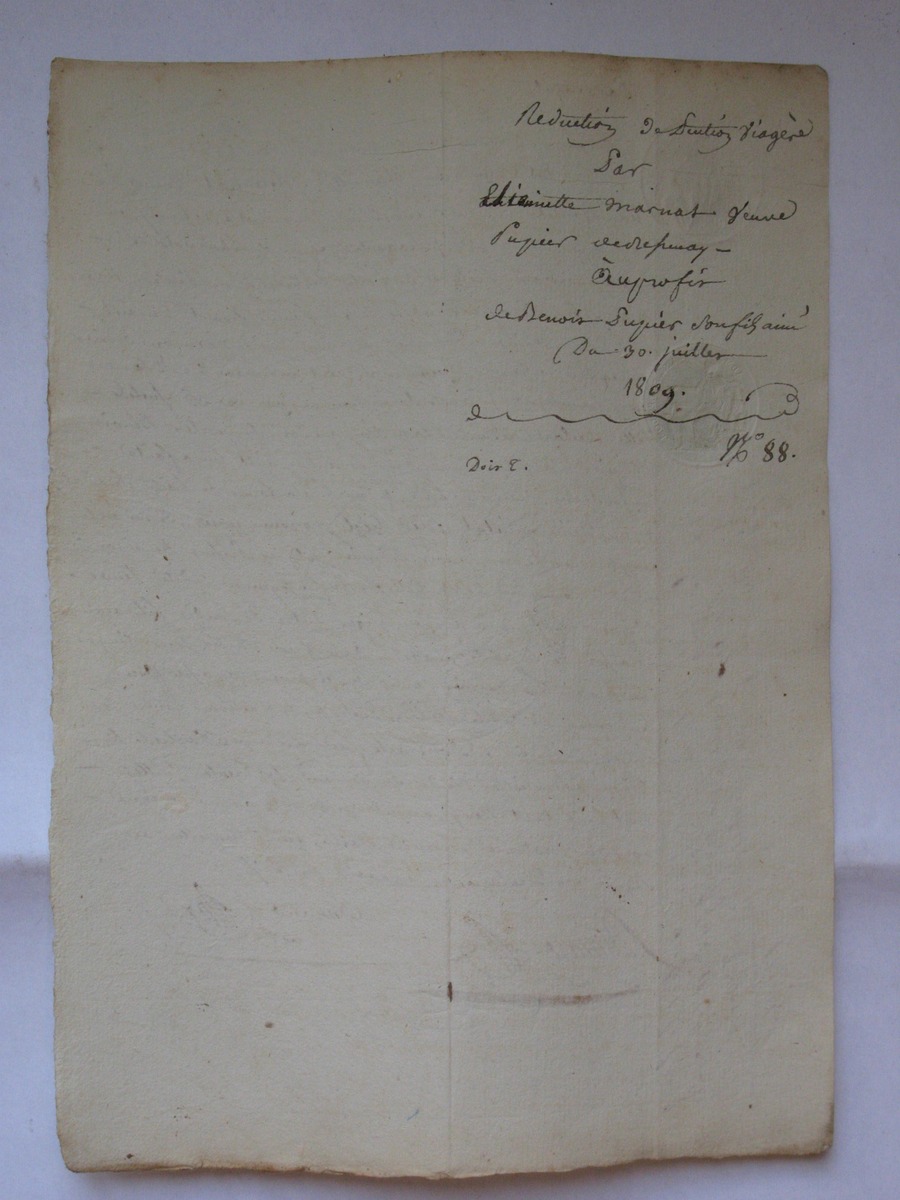 Reduction de Pention Viagère
Par
Ethiennette Marnat Veuve
Pupier
Au profit
de Benoit Pupier son fils ainé
Du 30. juillet
1809.
N° 88.